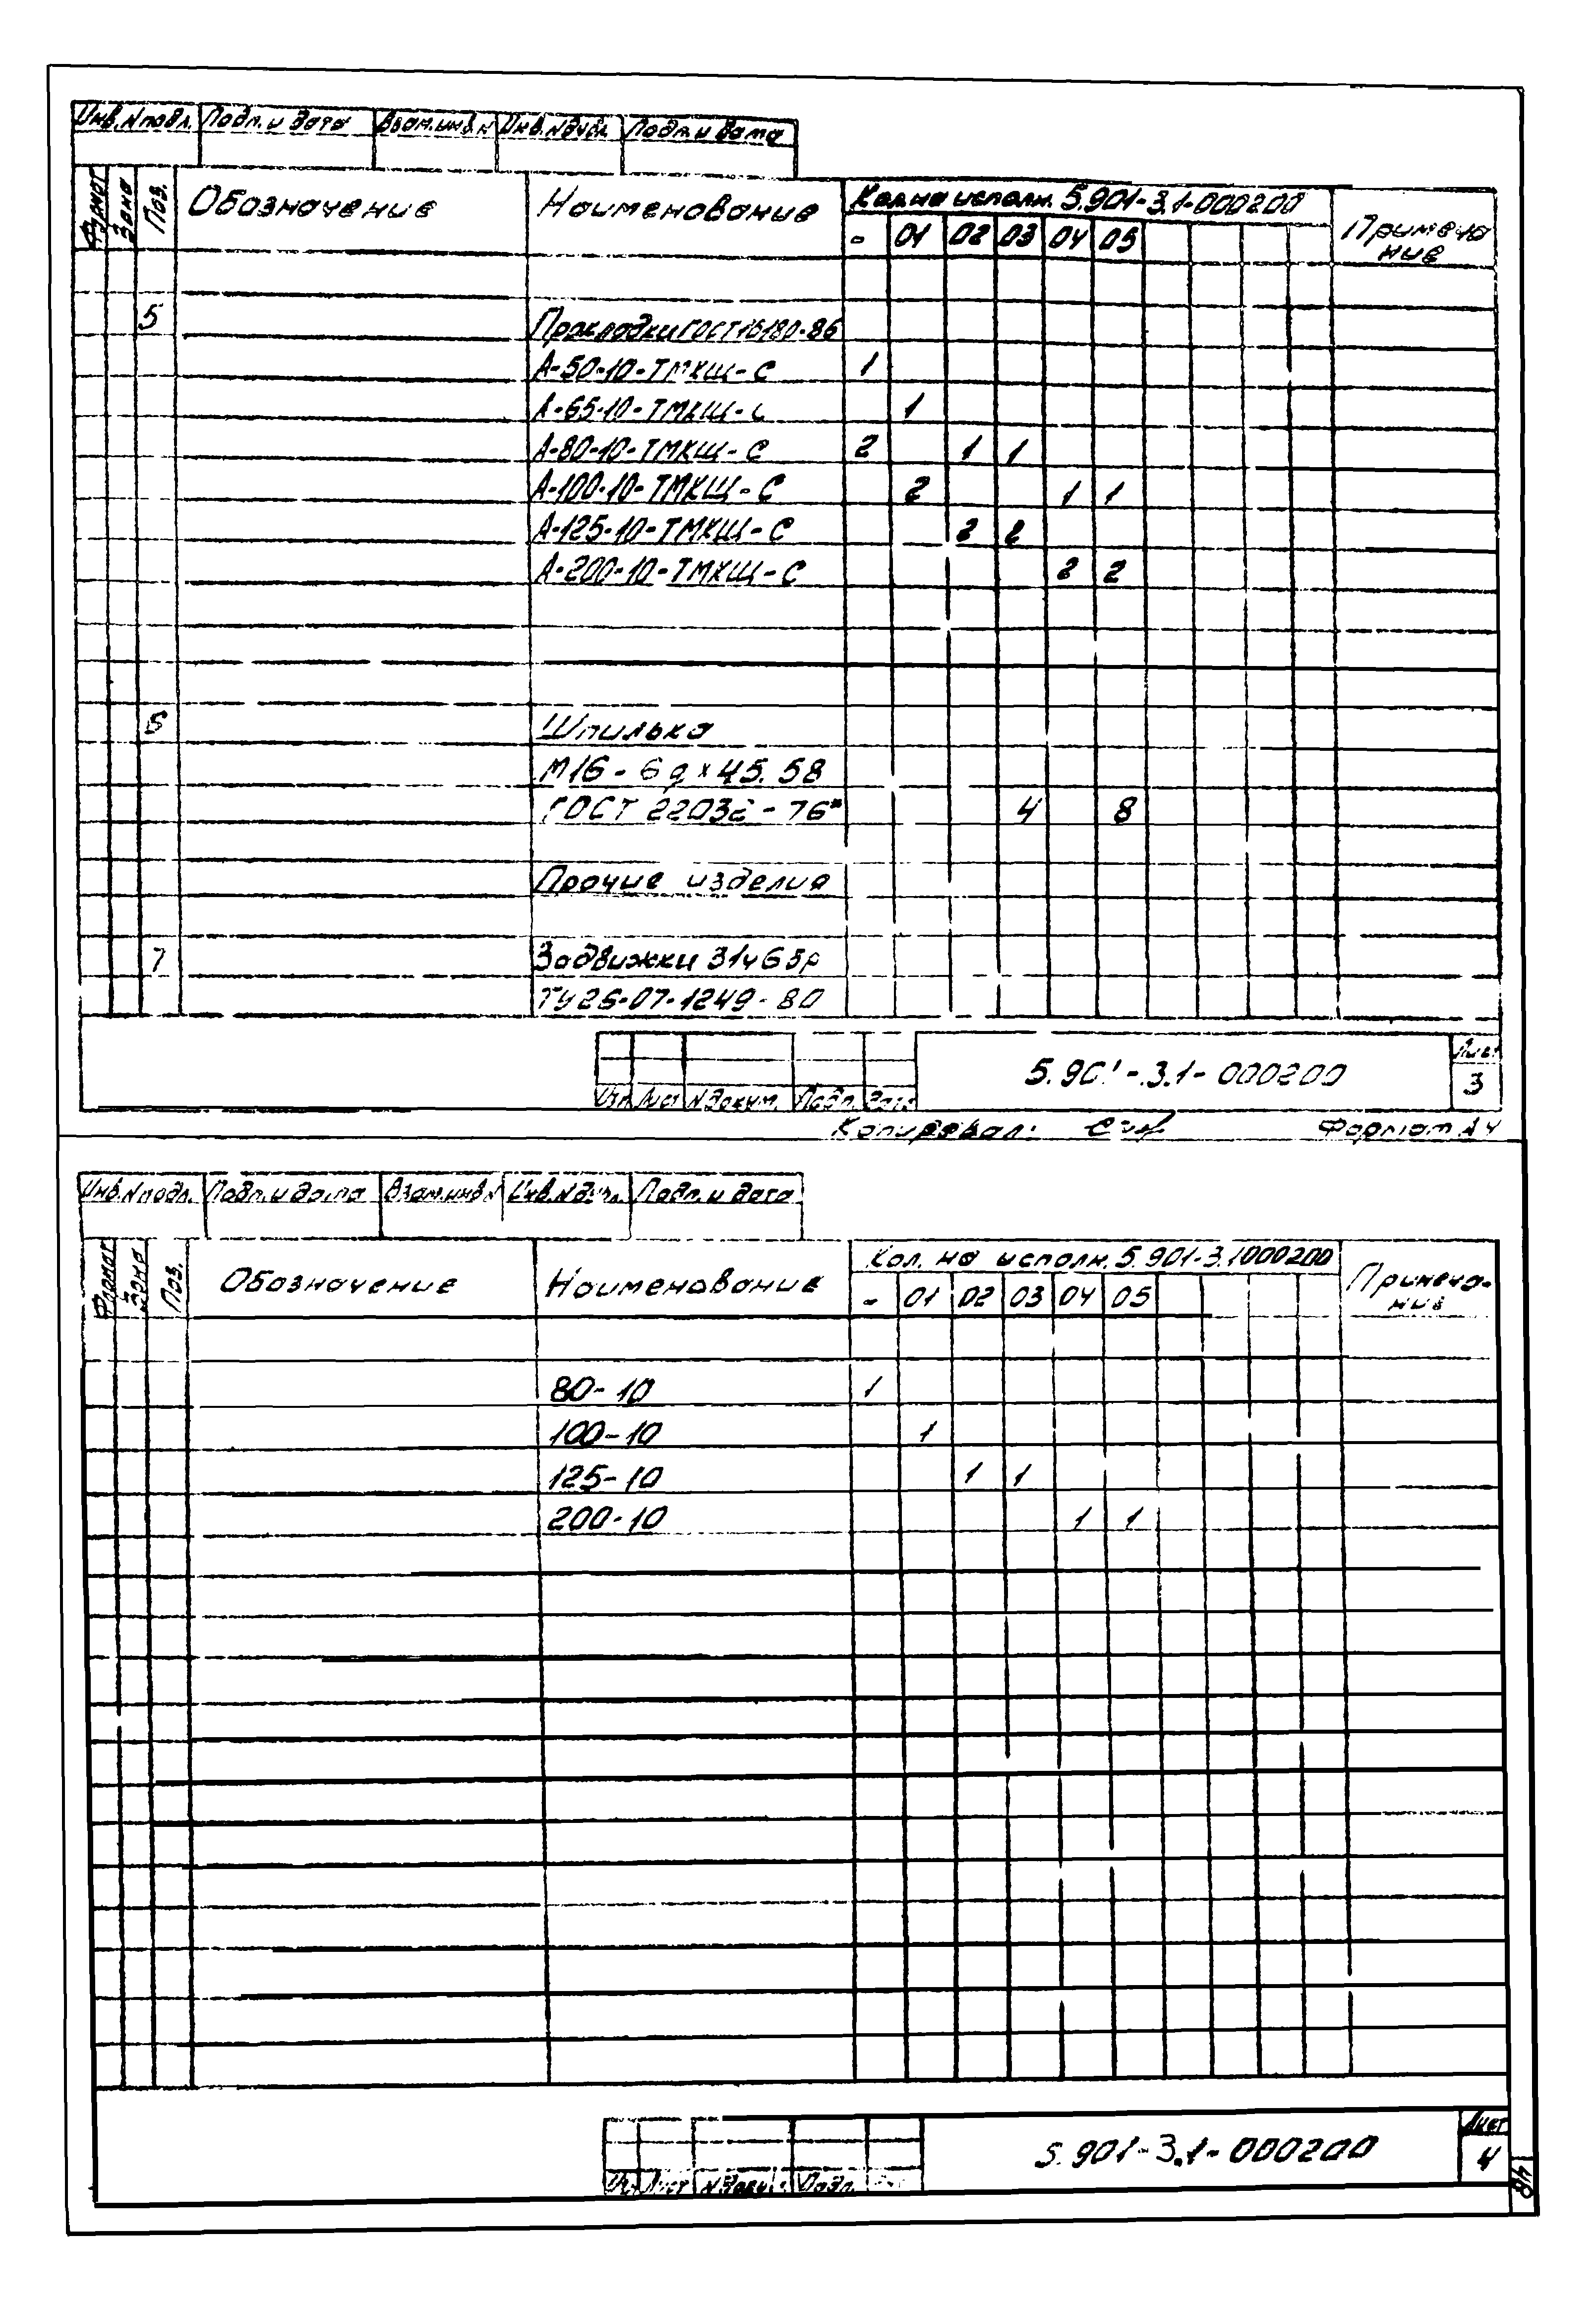 Инв.Nподл. Подп. и дата Взам.инв.N Инв.Nдубл. Подп. и дата
Формат Зона Поз. Обозначение Наименование Кол.на исполн. 5.901-3.1-000200 Примеча
ние
- 01 02 03 04 05
5 Прокладки ГОСТ 15180-86
А-50-10-ТМКЩ-С 1
А-65-10-ТМКЩ-С 1
А-80-10-ТМКЩ-С 2 1 1
А-100-10-ТМКЩ-С 2 1 1
А-125-10-ТМКЩ-С 2 2
А-200-10-ТМКЩ-С 2 2
6 Шпилька
М16-6g×45.58
ГОСТ 22032-76* 4 8
Прочие изделия
7 Задвижки 31ч6бр
ТУ26-07-1249-80
Изм. Лист N докум. Подп. Дата 5.901-3.1-000200 Лист
3
Копировал: Формат А4
Инв.Nподл. Подп. и дата Взам.инв.N Инв.Nдубл. Подп. и дата
Формат Зона Поз. Обозначение Наименование Кол. на исполн. 5.901-3.1000200 Примеча-
ние
- 01 02 03 04 05
80-10 1
100-10 1
125-10 1 1
200-10 1 1
Изм. Лист N докум. Подп. 5.901-3.1-000200 Лист
4
48